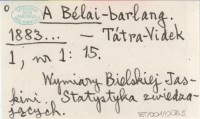 0 A Bélai-barlang.
1883... — Tátra-Vidék
1, nr 1: 15.
Wymiary Bielskiej Jas-
kini. Statystyka zwiedza-
jących.